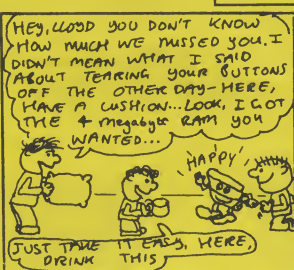 HEY, LLOYD YOU DON'T KNOW
HOW MUCH WE MISSED YOU. I
DIDN'T MEAN WHAT I SAID
ABOUT TEARING YOUR BUTTONS
OFF THE OTHER DAY-HERE,
HAVE A CUSHION... LOOK, I GOT
THE 4 megabyte RAM YOU
WANTED...
HAPPY
JUST TAKE IT EASY, HERE,
DRINK THIS